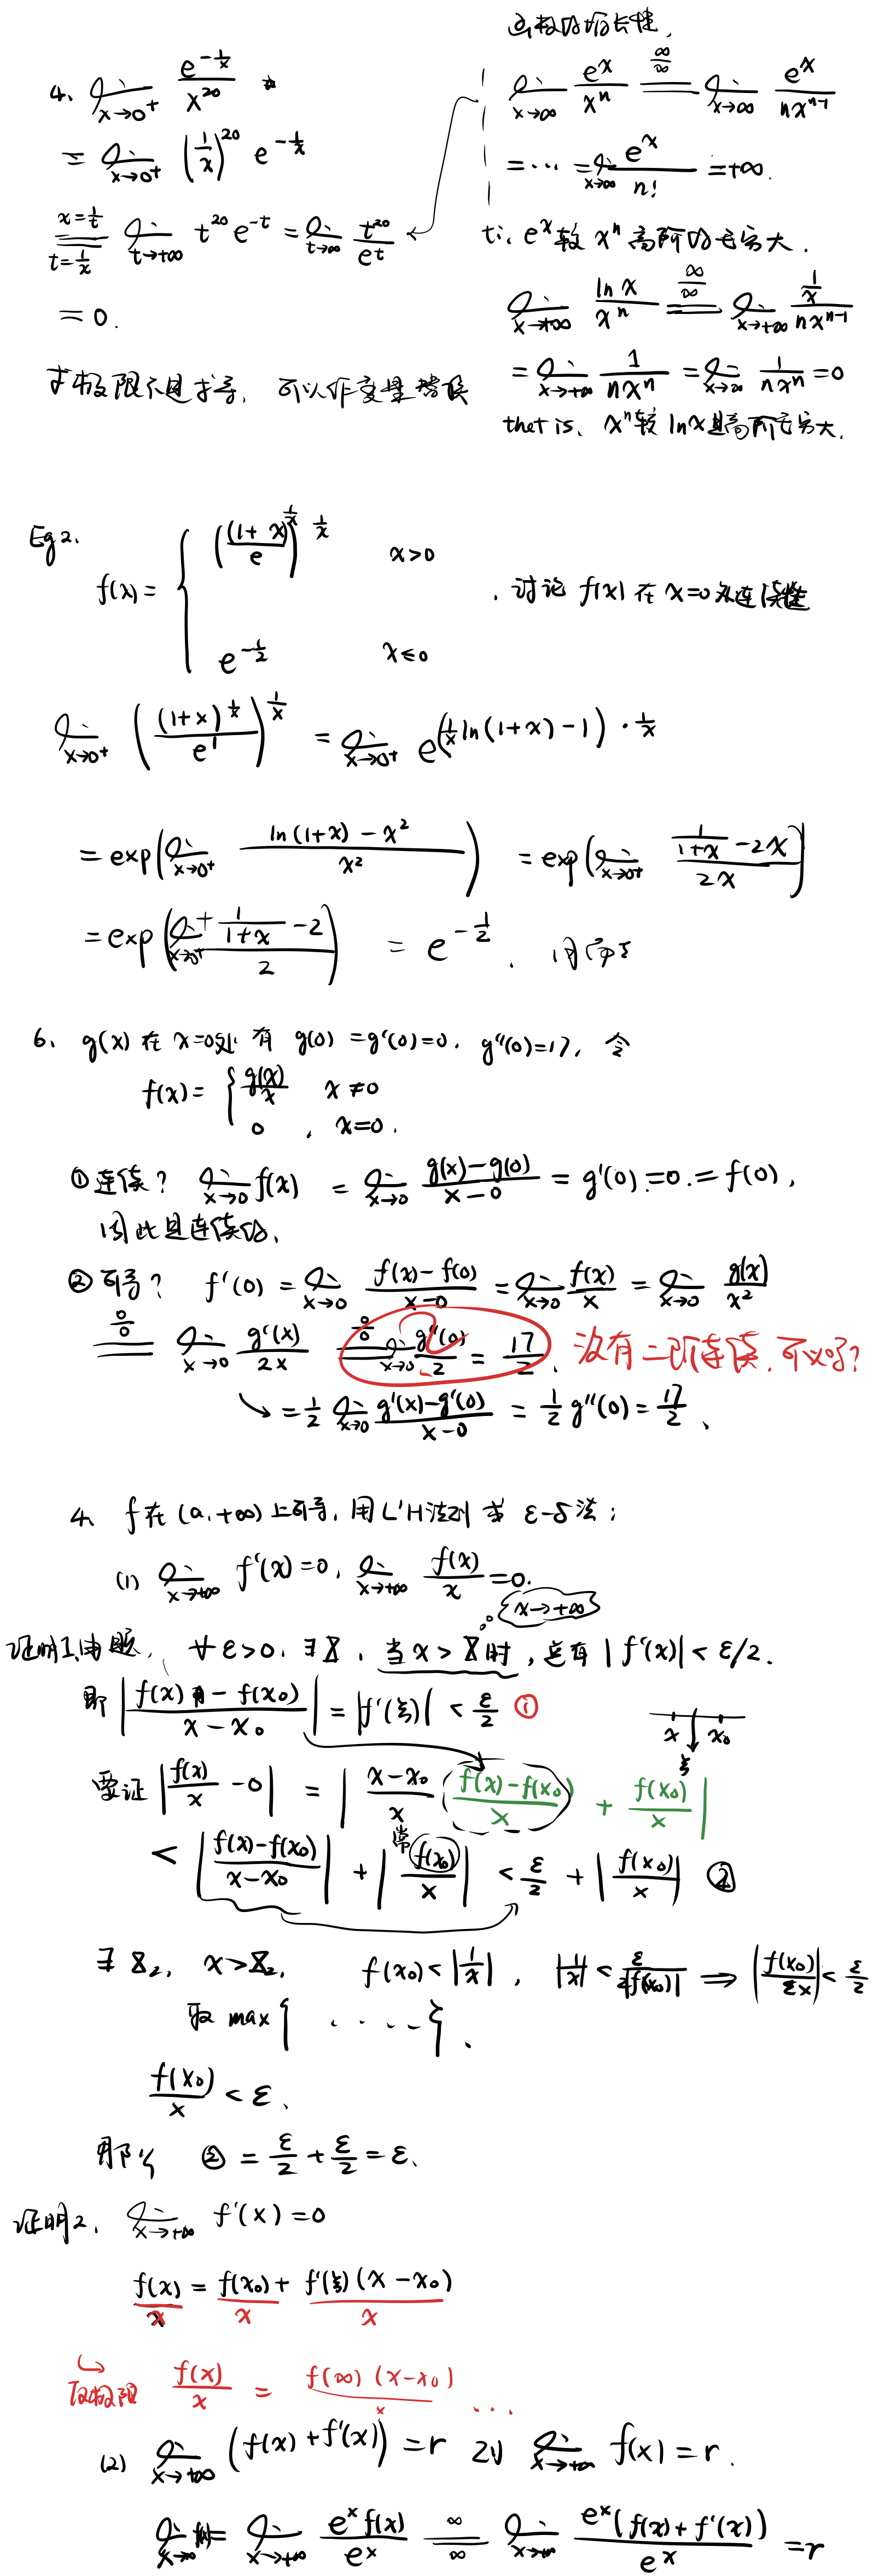 4、 lim_{x→0⁺} e^{-1/x} / x^{20}
= lim_{x→0⁺} (1/x)^{20} e^{-1/x}
x=1/t, t=1/x lim_{t→+∞} t^{20} e^{-t} = lim_{t→∞} t^{20}/e^t
= 0.
求极限不是求导，可以作变量替换
函数的增长性，
lim_{x→∞} e^x/x^n =(∞/∞)= lim_{x→∞} e^x/(nx^{n-1})
= ⋯ = lim_{x→∞} e^x/n! = +∞.
ti、e^x 较 x^n 高阶的无穷大.
lim_{x→+∞} ln x/x^n =(∞/∞)= lim_{x→+∞} (1/x)/(nx^{n-1})
= lim_{x→+∞} 1/(nx^n) = lim_{x→∞} 1/(nx^n) = 0
that is、x^n 较 ln x 是高阶无穷大.
Eg 2、
f(x) = { ((1+x)^{1/x}/e)^{1/x} x>0
e^{-1/2} x≤0
, 讨论 f(x) 在 x=0 处连续性
lim_{x→0⁺} ((1+x)^{1/x}/e^1)^{1/x} = lim_{x→0⁺} e^{(1/x ln(1+x) - 1)·1/x}
= exp(lim_{x→0⁺} (ln(1+x) - x²)/x²) = exp(lim_{x→0⁺} (1/(1+x) - 2x)/2x)
= exp(lim_{x→0⁺} (1/(1+x) - 2)/2) = e^{-1/2}.
6、 g(x) 在 x=0处 有 g(0)=g'(0)=0, g''(0)=17, 令
f(x) = { g(x)/x x≠0
0 , x=0.
① 连续? lim_{x→0} f(x) = lim_{x→0} (g(x)-g(0))/(x-0) = g'(0)=0.=f(0),
因此是连续的、
② 可导? f'(0) = lim_{x→0} (f(x)-f(0))/(x-0) = lim_{x→0} f(x)/x = lim_{x→0} g(x)/x²
=(0/0)= lim_{x→0} g'(x)/2x =(0/0)= lim_{x→0} g''(0)/2 = 17/2. 没有二阶连续,可以吗?
↘ = 1/2 lim_{x→0} (g'(x)-g'(0))/(x-0) = 1/2 g''(0) = 17/2、
4、 f 在 (a,+∞) 上可导, 用 L'H 法则 或 ε-δ法:
(1) lim_{x→+∞} f'(x)=0, lim_{x→+∞} f(x)/x=0.
x→+∞
证明1、由题, ∀ε>0, ∃X, 当 x>X 时, 总有 |f'(x)| < ε/2.
即 |(f(x)-f(x₀))/(x-x₀)| = |f'(ξ)| < ε/2 ①
x ξ x₀
要证 |f(x)/x - 0| = |(x-x₀)/x (f(x)-f(x₀))/x + f(x₀)/x|
< |(f(x)-f(x₀))/(x-x₀)| + |f(x₀)/x| < ε/2 + |f(x₀)/x| ②
常
∃X₂, x>X₂, f(x₀)<|1/x|, |1/x| < ε/(2|f(x₀)|) ⟹ |f(x₀)/x| < ε/2
取 max{ ⋯⋯ }、
f(x₀)/x < ε、
那么 ② = ε/2 + ε/2 = ε、
证明2、 lim_{x→+∞} f'(x)=0
f(x)/x = f(x₀)/x + f'(ξ)(x-x₀)/x
↪ 取极限 f(x)/x = f(∞)(x-x₀)/x ⋯
(2) lim_{x→+∞} (f(x)+f'(x)) = r 则 lim_{x→+∞} f(x) = r.
lim_{x→∞} = lim_{x→+∞} e^x f(x)/e^x =(∞/∞)= lim_{x→+∞} e^x(f(x)+f'(x))/e^x = r